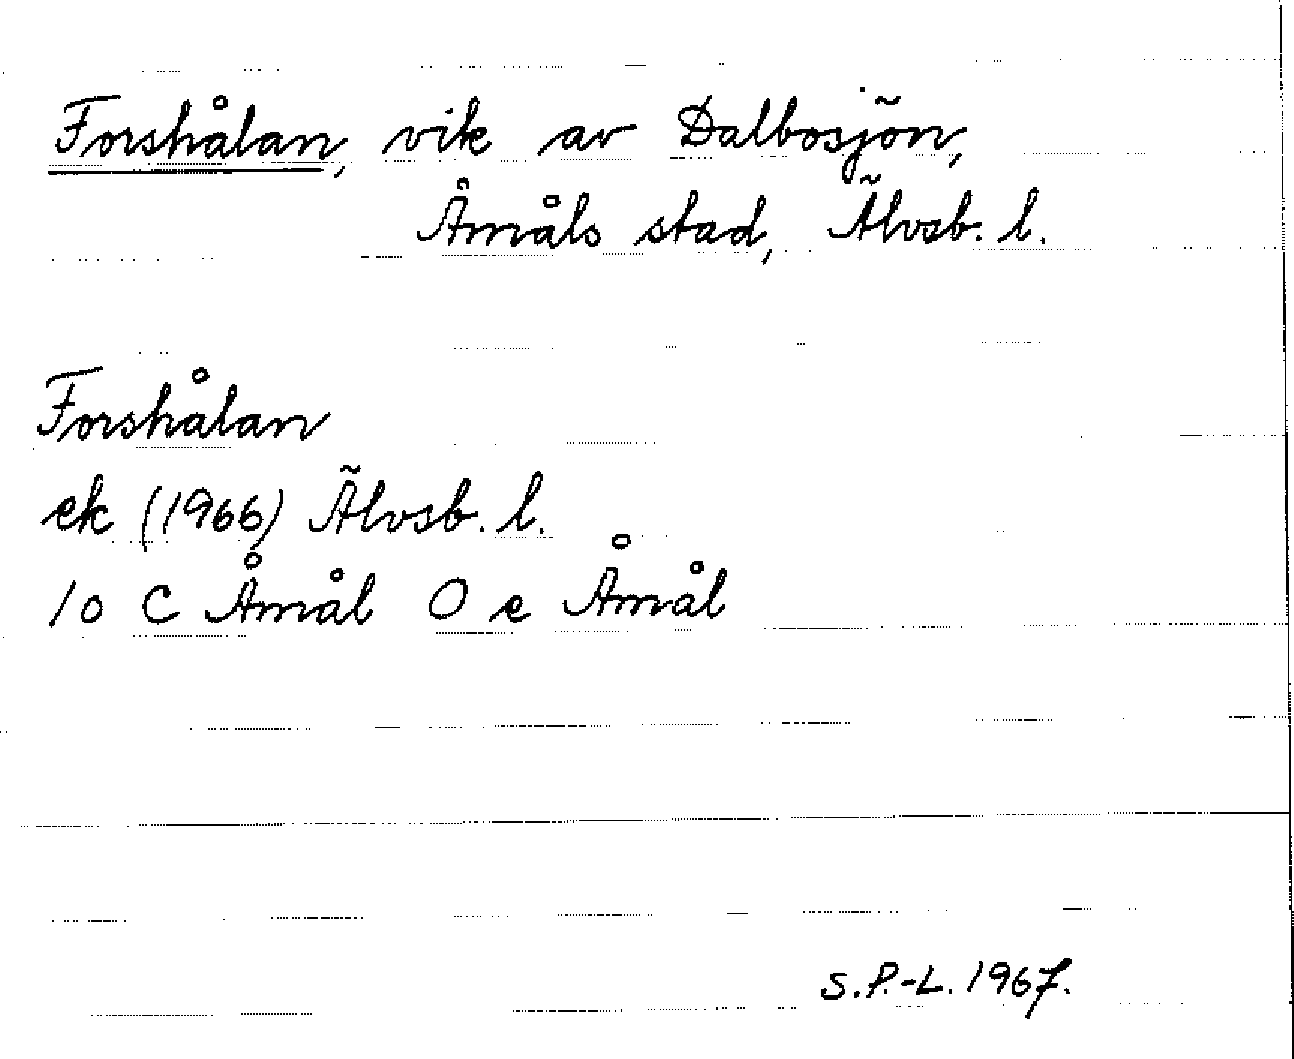 Forshålan, vik av Dalbosjön,
Åmåls stad, Älvsb. l.
Forshålan
ek (1966) Älvsb. l.
10 C Åmål O e Åmål
S.P.-L. 1967.